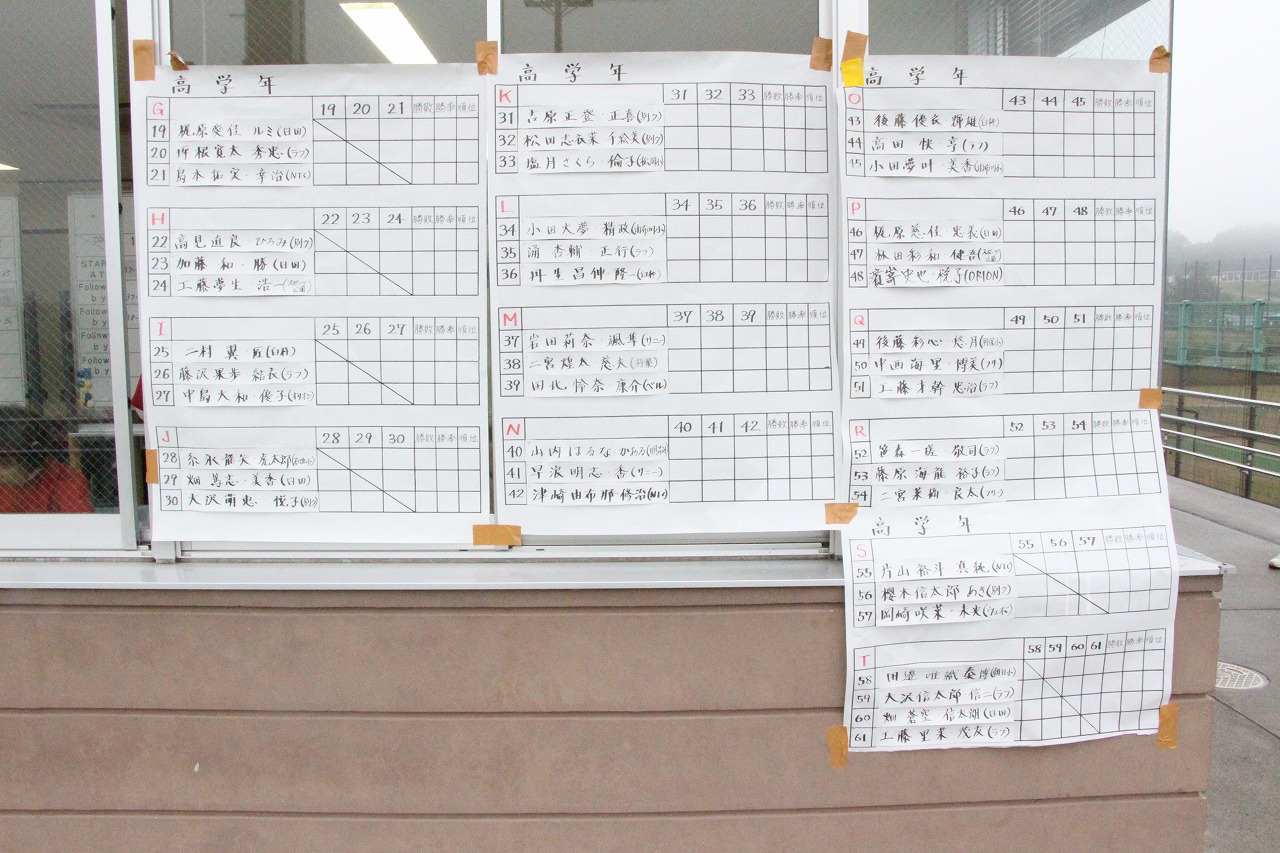 高学年
G 19 20 21 勝敗 勝率 順位
19 梶原愛佳 ルミ(日田)
20 所根寛太・秀忠(ラフ)
21 島本拓実・幸治(NTC)
H 22 23 24 勝敗 勝率 順位
22 高見直良・ひろみ(別フ)
23 加藤 和・勝(日田)
24 工藤夢生 浩一
I 25 26 27 勝敗 勝率 順位
25 二村 翼 匠(臼杵)
26 藤沢果歩 結衣(ラフ)
27 中島大和・優子
J 28 29 30 勝敗 勝率 順位
28 糸永龍矢・虎太郎
29 畑 篤志・美香(日田)
30 大沢萌恵 悦子(別フ)
高学年
K 31 32 33 勝敗 勝率 順位
31 吉原正登・正喜(別フ)
32 松田志衣菜・千絵美(別フ)
33 塩月さくら・倫子
L 34 35 36 勝敗 勝率 順位
34 小田大夢 精政(由布川小)
35 涌 杏輔・正行(ラフ)
36 丹生昌伸 隆(臼杵)
M 37 38 39 勝敗 勝率 順位
37 岩田莉奈・颯隼(サニー)
38 二宮煌太 慈夫
39 田北怜奈 康介(ベル)
N 40 41 42 勝敗 勝率 順位
40 山内はるな かおる(明治)
41 早浪明志・香(サニー)
42 津崎由布那 修治(NTC)
高学年
O 43 44 45 勝敗 勝率 順位
43 後藤優衣 輝雄(臼杵)
44 高田 快・音(ラフ)
45 小田夢叶・美香(由布川小)
P 46 47 48 勝敗 勝率 順位
46 梶原慈佳・忠義(日田)
47 秋田彩和 健吾
48 濱嵜史也・悦子(ORION)
Q 49 50 51 勝敗 勝率 順位
49 後藤彩心・悠月
50 中西海里・博美(フリー)
51 工藤才幹 忠治(ラフ)
R 52 53 54 勝敗 勝率 順位
52 笹森一瑳 敬司(ラフ)
53 藤原海龍 裕子(ラフ)
54 二宮菜樹・良太(フリー)
高学年
S 55 56 57 勝敗 勝率 順位
55 片山裕斗 真純(NTC)
56 櫻木信太郎 あき(別フ)
57 岡崎咲菜・未央
T 58 59 60 61 勝敗 勝率 順位
58 田邉唯織 泰博(朝日小)
59 大沢信太郎 信二(ラフ)
60 畑 蒼空 信太朗(日田)
61 工藤里菜 茂友(ラフ)
START
Follow
by
Follow
by
Follow
by
Follow
by